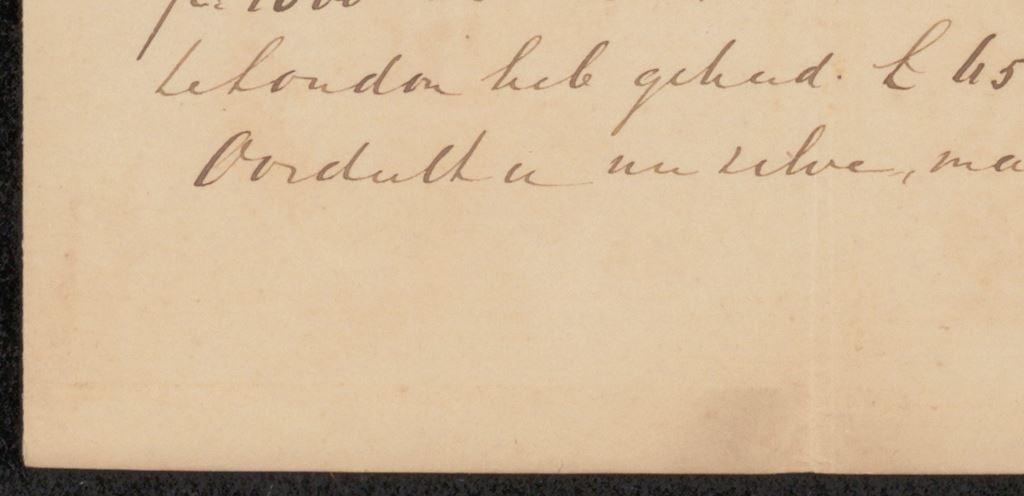 per 1000
te London heb gehad. £ 45
Oordeelt u nu zelve, ma